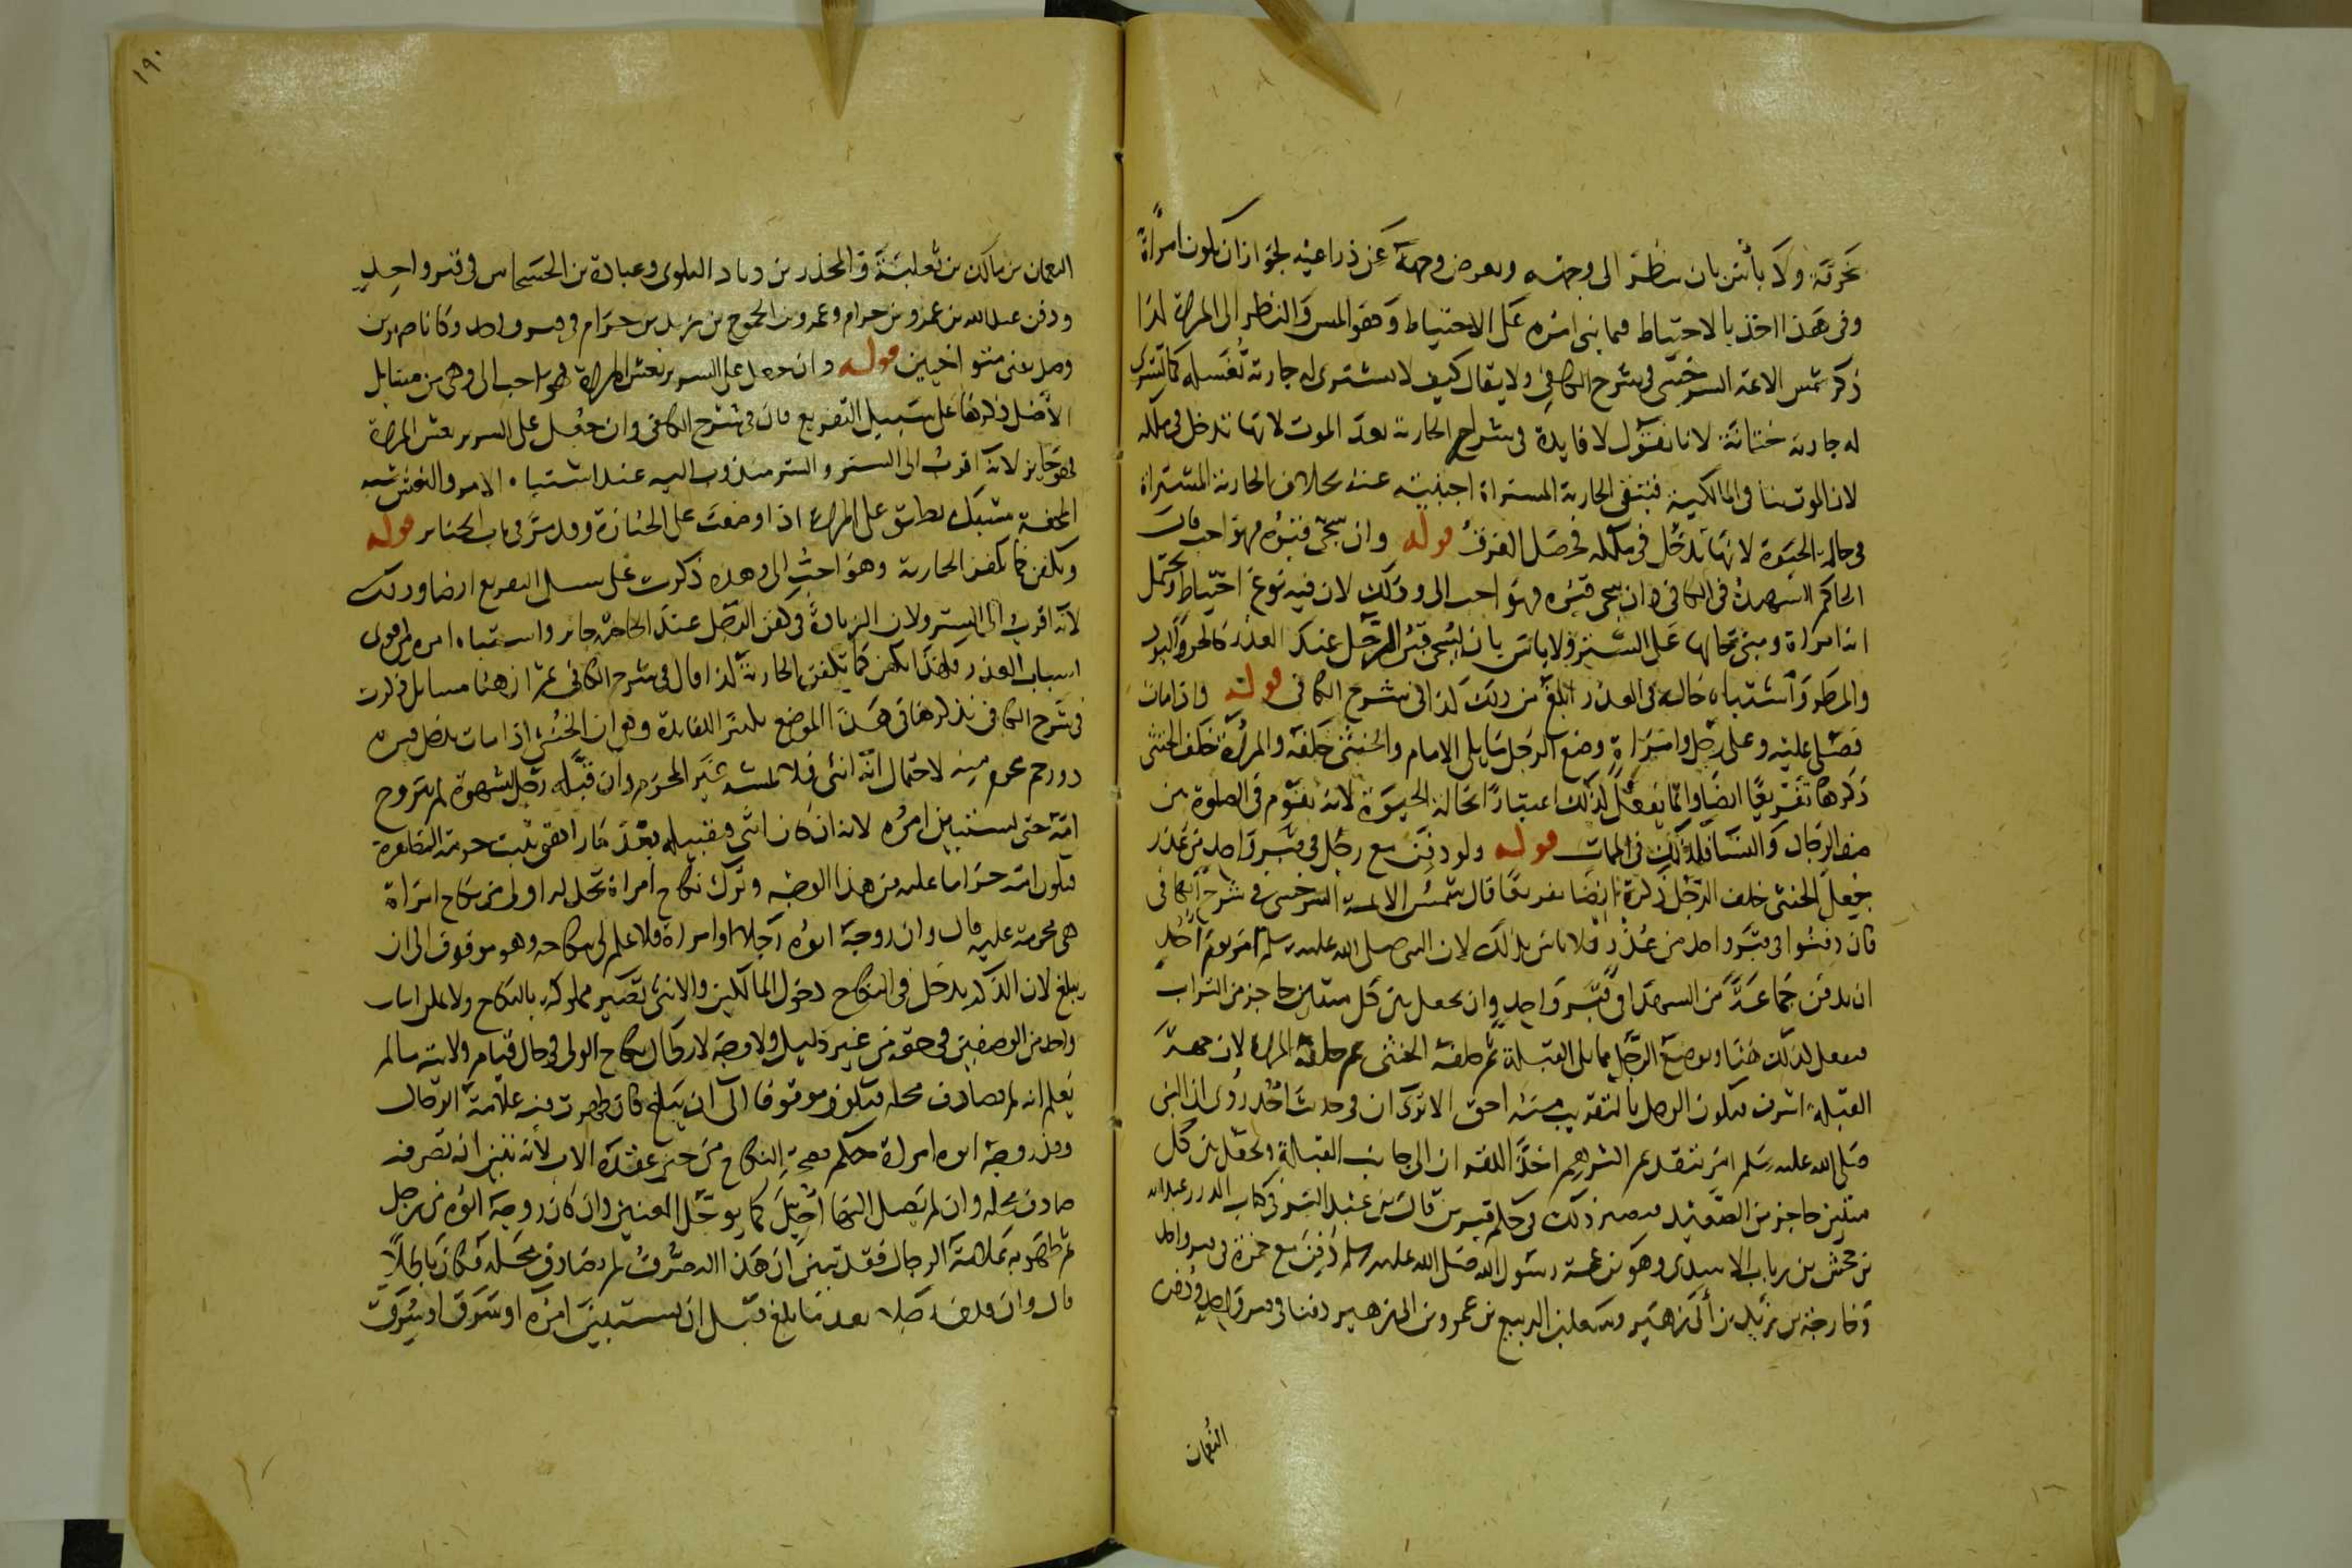 بخرقة ولا بأس بان ينظر الى وجهه ويعرض وجهه عن ذراعيه لجواز ان يكون امرأة
وفي هذا اخذ بالاحتياط فيما بنى امره على الاحتياط وهو المس والنظر الى المرأة لذا
ذكر شمس الائمة السرخسي في شرح الكافي ولا يقال كيف لا يشترى له جارية تغسله كما تشترى
له جارية ختانة لانا نقول لا فايدة في شراء الجارية بعد الموت لانها تدخل في ملكه
لان الموت ينافي المالكية فتبقى الجارية المشتراة اجنبية عنه بخلاف الجارية المشتراة
في حالة الحيوة لانها تدخل في ملكه فحصل الفرق قوله وان سجى قبره فهو احب قال
الحاكم الشهيد في الكافي وان سجى قبره فهو احب الى وذلك لان فيه نوع احتياط ويحتمل
انه امرأة ومبنى حالها على الستر ولا باس بان يسجى قبر الرجل عند العذر كالحر والبرد
والمطر واشتباه حاله في العذر ابلغ من ذلك كذا في شرح الكافي قوله واذا مات
فصلى عليه وعلى رجل وامرأة وضع الرجل مما يلي الامام والخنثى خلفه والمرأة خلف الخنثى
ذكرها تفريعا ايضا وانما يفعل كذلك اعتبارا بحالة الحيوة لانه يقوم في الصلوة بين
صف الرجال والنساء فكذلك في الممات قوله ولو دفن مع رجل في قبر واحد من عذر
جعل الخنثى خلف الرجل ذكره ايضا تفريعا قال شمس الائمة السرخسي في شرح الكافي
فان دفنوا في قبر واحد من عذر فلا باس بذلك لان النبي صلى الله عليه وسلم امر يوم احد
ان يدفن جماعة من الشهداء في قبر واحد وان يجعل بين كل ميتين حاجز من التراب
فيفعل كذلك هنا ويوضع الرجل مما يلي القبلة ثم خلفه الخنثى ثم خلفه المرأة لان جهة
القبلة اشرف فيكون الرجل بالتقريب منه احق الا ترى ان في حديث احد روى ان النبي
صلى الله عليه وسلم امر بتقديم اكثرهم اخذا للقران الى جانب القبلة وبجعل بين كل
ميتين حاجز من الصعيد فيصير ذلك في حكم قبرين قال ابن عبد البر في كتاب الدرر عبد الله
بن جحش بن رياب الاسدي وهو بن عمة رسول الله صلى الله عليه وسلم دفن مع حمزة في قبر واحد
وخارجة بن زيد بن أبي زهير وسعد بن الربيع بن عمرو بن ابي زهير دفنا في قبر واحد ودفن
النعمان
١٩٠
النعمان بن مالك بن ثعلبة والمجذر بن دياد البلوي وعبادة بن الحسحاس في قبر واحد
ودفن عبد الله بن عمرو بن حرام وعمرو بن الجموح بن زيد بن حرام في قبر واحد وكانا صهرين
قوله وان جعل على السرير نعش المرأة فهو احب الى وهي من مسايل
الاصل ذكرها على سبيل التفريع قال في شرح الكافي وان جعل على السرير نعش المرأة
فهو جايز لانه اقرب الى الستر والستر مندوب اليه عند اشتباه الامر والنعش شبه
المحفة مشبك يطابق على المرأة اذا وضعت على الجنازة وقد مر في باب الجنايز قوله
ويكفن كما تكفن الجارية وهو احب الى وهذه ذكرت على سبيل التفريع ايضا وذلك
لانه اقرب الى الستر ولان الزيادة في كفن الرجل عند الحاجة جايز واشتباه امره من اقوى
اسباب العذر فلهذا يكفن كما تكفن الجارية كذا قال في شرح الكافي ثم ان هنا مسايل ذكرت
في شرح الكافي نذكرها في هذا الموضع تكثيرا للفايدة وهو ان الخنثى اذا مات يدخل قبره
ذو رحم محرم منه لاحتمال انه انثى فلا تمسه غير المحرم وان قبله رجل بشهوة لم يتزوج
امه حتى يستبين امره لانه ان كان انثى فبتقبيله بعد ما راهق تثبت حرمة المصاهرة
فيكون امه حراما عليه من هذا الوجه وترك نكاح امرأة تحل له اولى من نكاح امرأة
هي محرمة عليه قال وان زوجه ابوه رجلا او امرأة فلا علم لي بنكاحه وهو موقوف الى ان
يبلغ لان الذكر يدخل في النكاح دخول المالكين والانثى تصير مملوكة بالنكاح ولا يمكن اثبات
واحد من الوصفين في حقه من غير دليل ولا وجه لابطال نكاح الولي في حال قيام ولايته ما لم
يعلم انه لم يصادف محله فيكون موقوفا الى ان يبلغ فان ظهرت فيه علامة الرجال
وقد زوجه ابوه امرأة حكم بصحة النكاح من حين عقده الاب لانه تبين ان تصرفه
صادف محله وان لم يصل اليها اجل كما يؤجل العنين وان كان زوجه ابوه من رجل
ثم ظهر به علامة الرجال فقد تبين ان هذا التصرف لم يصادف محله فكان باطلا
قال وان بعد ما بلغ قبل ان يستبين امره او سرق او سرق